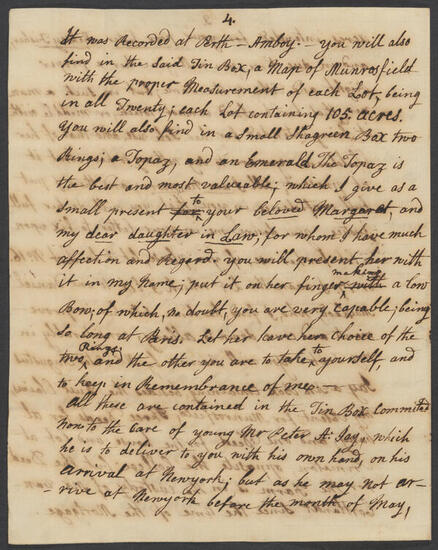 4.
It was Recorded at Perth-Amboy. You will also
find in the said Tin Box, a Map of Munrosfield
with the proper Measurement of each Lot, being
in all Twenty; each Lot containing 105 acres.
You will also find in a Small Shagreen Box two
Rings; a Topaz, and an Emerald. The Topaz is
the best and most valueable; which I give as a
to
small present for your beloved Margaret, and
my dear daughter in Law; for whom I have much
affection and Regard. you will present her with
making
it in my Name; put it on her finger with a low
Bow; of which, no doubt, you are very Capable; being
so long at Paris. Let her have her Choice of the
Rings to
two, and the other you are to take yourself, and
to keep in Remembrance of me. —
All these are contained in the Tin Box committed
now to the Care of young Mr Peter A: Jay, which
he is to deliver to you with his own hand, on his
arrival at Newyork; but as he may not ar-
-rive at Newyork before the month of May,